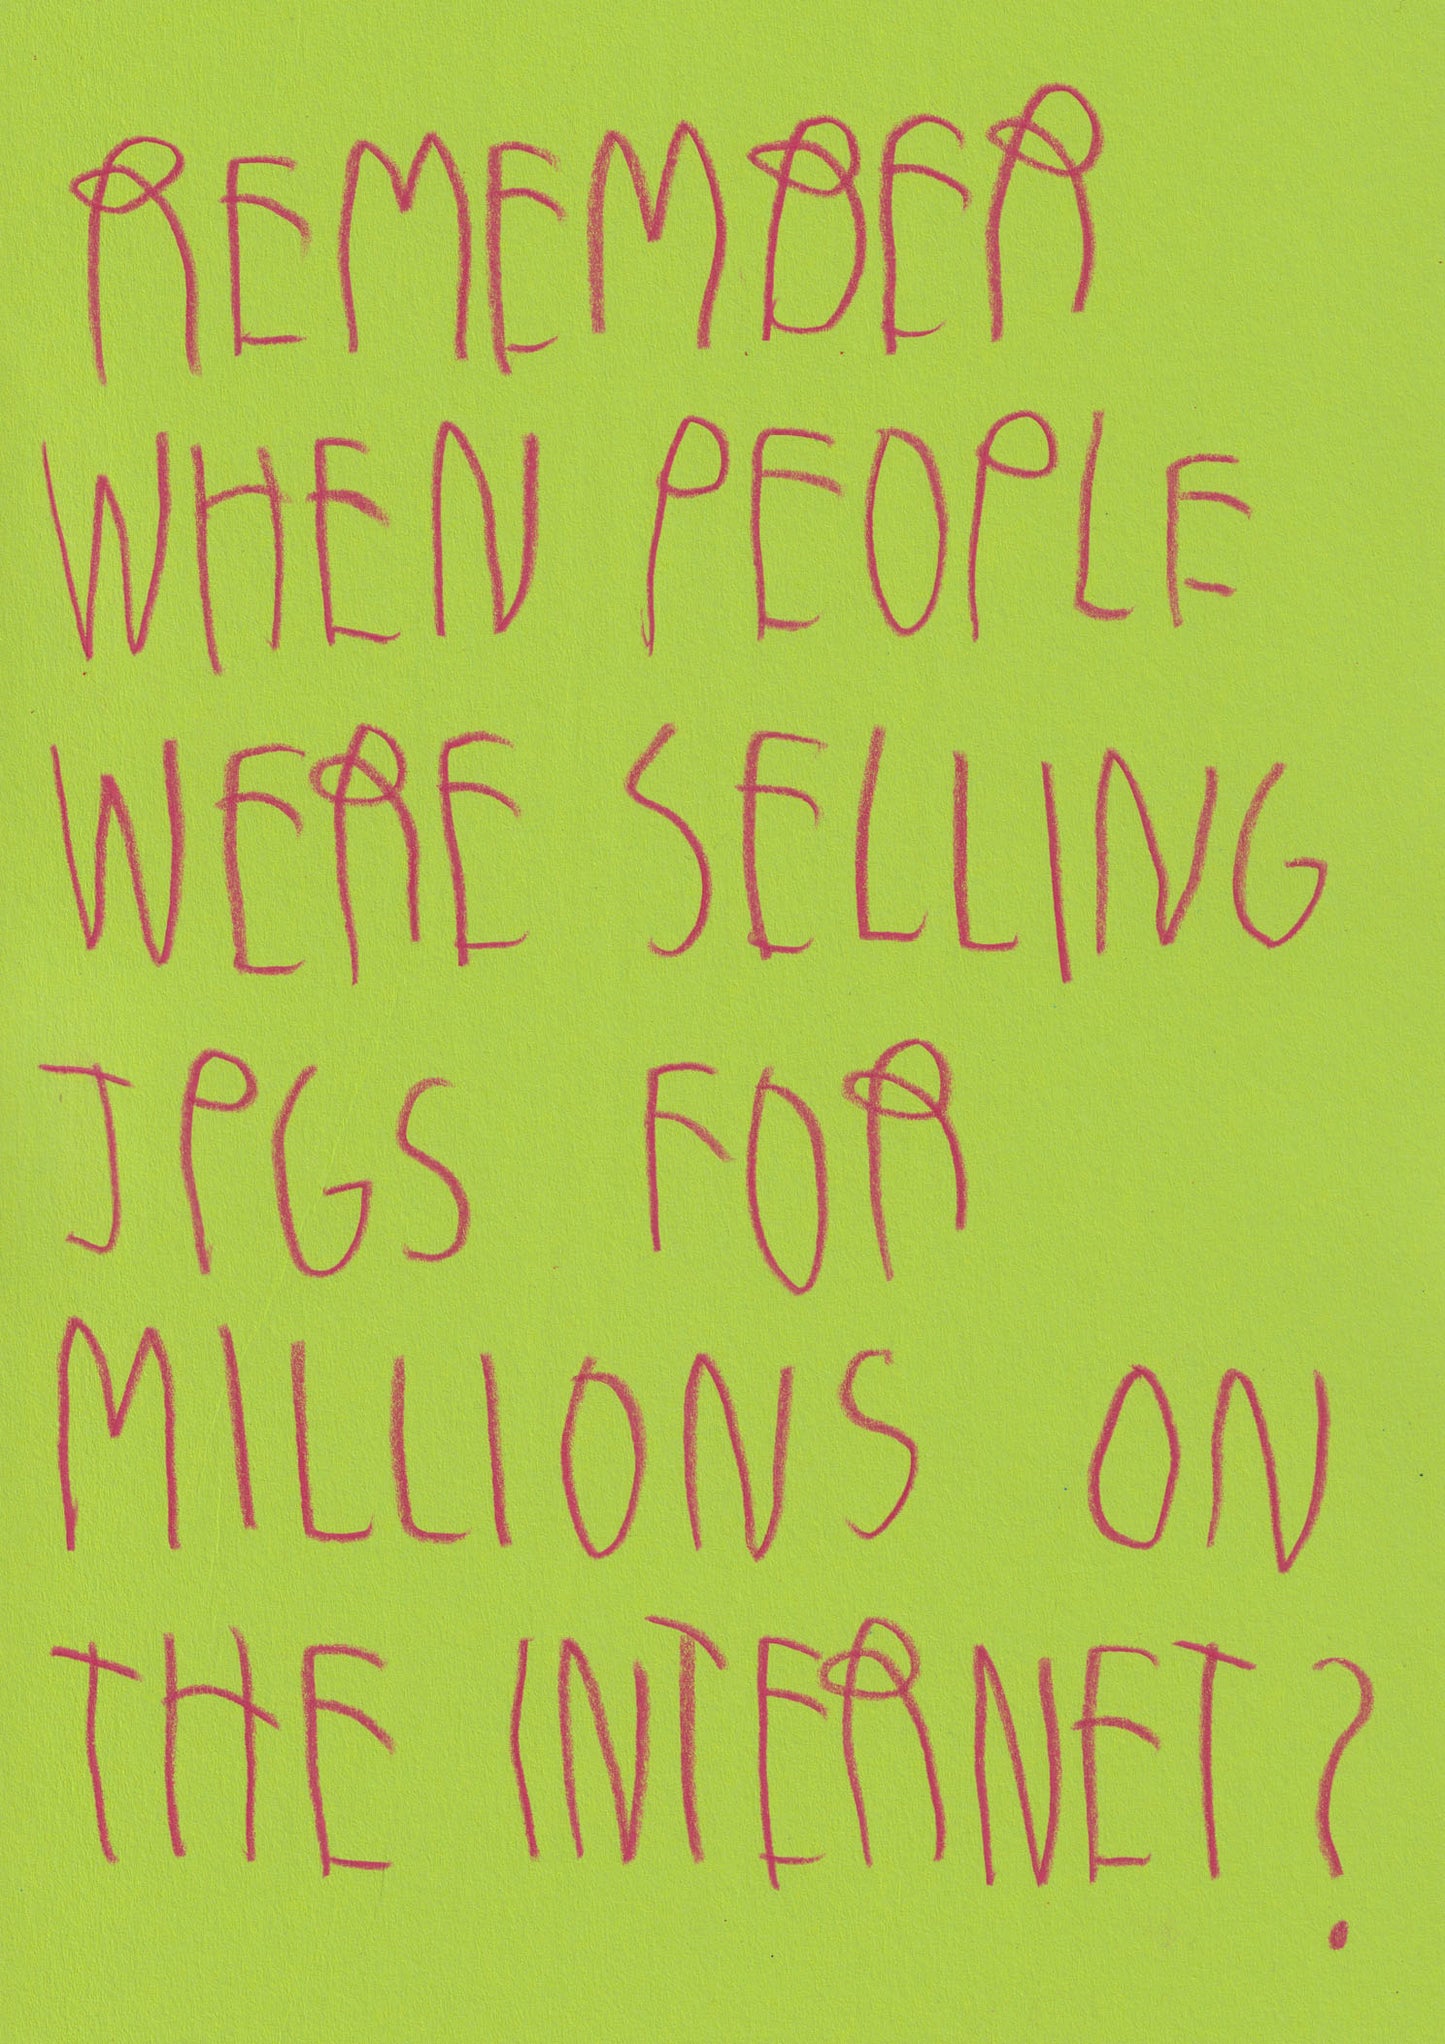 REMEMBER
WHEN PEOPLE
WERE SELLING
JPGS FOR
MILLIONS ON
THE INTERNET?